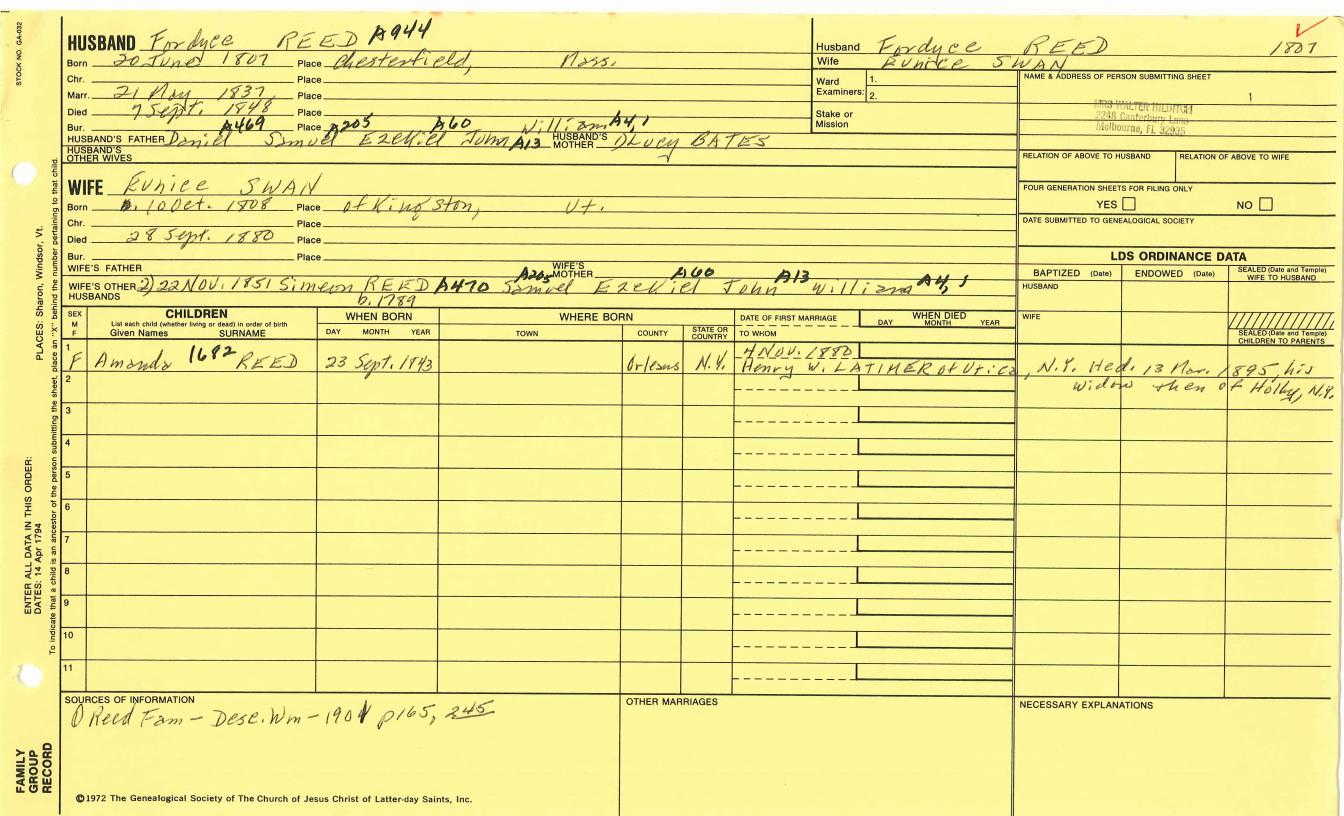 STOCK NO. GA-032
HUSBAND Fordyce REED A944
Born 20 June 1807 Place Chesterfield, Mass.
Chr. Place
Marr. 21 May 1837, Place
Died 7 Sept. 1848 Place
Bur. A469 Place A205 A60 William A4,1
HUSBAND'S FATHER Daniel Samuel Ezekiel John A13 HUSBAND'S MOTHER Lucy BATES
HUSBAND'S OTHER WIVES
Husband Fordyce REED 1807
Wife Eunice SWAN
Ward Examiners: 1.
2.
Stake or Mission
NAME & ADDRESS OF PERSON SUBMITTING SHEET
1
MRS WALTER HILDITCH
2248 Canterbury Lane
Melbourne, FL 32935
RELATION OF ABOVE TO HUSBAND RELATION OF ABOVE TO WIFE
FOUR GENERATION SHEETS FOR FILING ONLY
YES NO
DATE SUBMITTED TO GENEALOGICAL SOCIETY
WIFE Eunice SWAN
Born 10 Oct. 1808 Place of Kingston, Vt.
Chr. Place
Died 28 Sept. 1880 Place
Bur. Place
WIFE'S FATHER WIFE'S MOTHER
A205 A60 A13 A4,1
WIFE'S OTHER HUSBANDS 2) 22 NOV. 1851 Simeon REED A470 Samuel Ezekiel John William
b. 1789
LDS ORDINANCE DATA
BAPTIZED (Date) ENDOWED (Date) SEALED (Date and Temple) WIFE TO HUSBAND
HUSBAND
WIFE
SEALED (Date and Temple) CHILDREN TO PARENTS
SEX M F
CHILDREN
List each child (whether living or dead) in order of birth
Given Names SURNAME
WHEN BORN
DAY MONTH YEAR
WHERE BORN
TOWN COUNTY STATE OR COUNTRY
DATE OF FIRST MARRIAGE
TO WHOM
WHEN DIED
DAY MONTH YEAR
1
F Amanda 1682 REED 23 Sept. 1843 Orleans N.Y. 4 NOV. 1880
Henry W. LATIMER of Utica, N.Y. He d. 13 Mar. 1895, his
widow then of Holly, N.Y.
2
3
4
5
6
7
8
9
10
11
SOURCES OF INFORMATION
Reed Fam - Desc. Wm - 1901 p165, 245
OTHER MARRIAGES
NECESSARY EXPLANATIONS
©1972 The Genealogical Society of The Church of Jesus Christ of Latter-day Saints, Inc.
FAMILY GROUP RECORD
ENTER ALL DATA IN THIS ORDER:
DATES: 14 Apr 1794
PLACES: Sharon, Windsor, Vt.
To indicate that a child is an ancestor of the person submitting the sheet, place an "X" behind the number pertaining to that child.